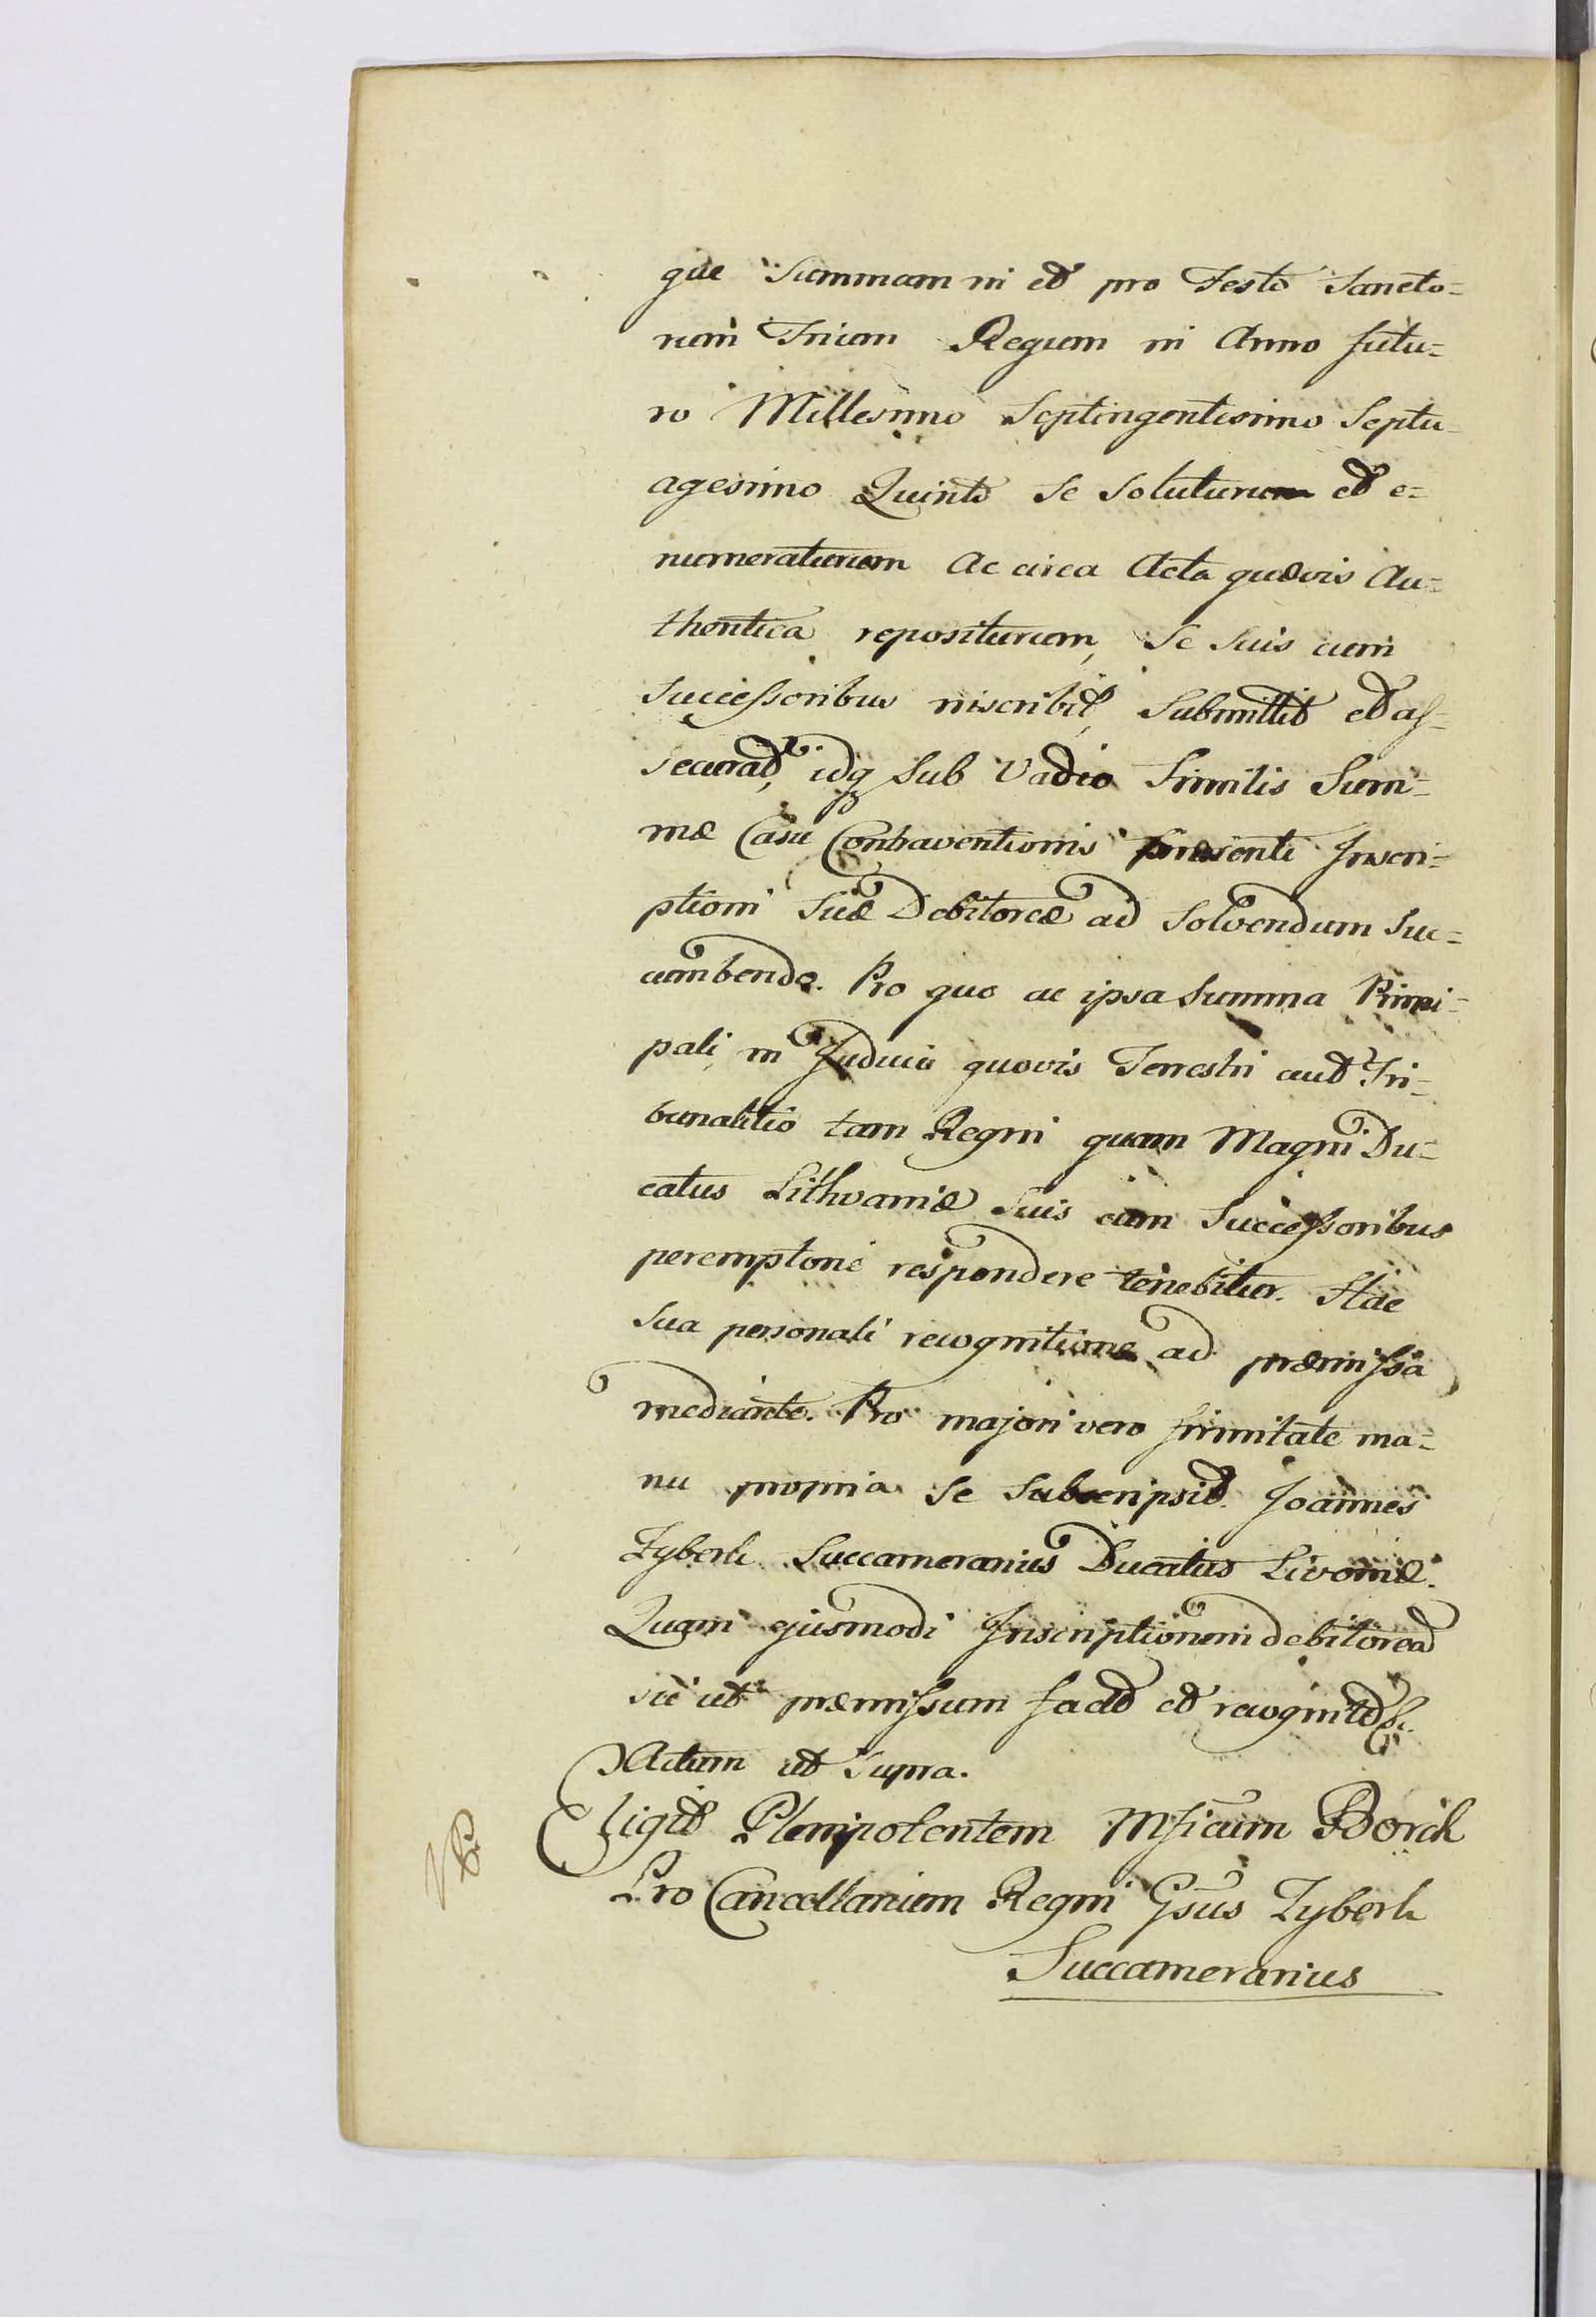 que Summam in et pro Festo Sancto=
rum Trium Regum in Anno futu=
ro Millesimo Septingentesimo Septu
agesimo Quinto Se Soluturum et e=
numeraturum Ac circa Acta quævis Au=
thentica repositurum, Se Suis cum
Successoribus inscribit, Submittit et as=
securat, idq Sub Vadio Similis Sum=
mæ Casu Contraventionis præsenti Inscri=
ptioni Suæ Debitoreæ ad Solvendum Suc=
cumbendo. Pro quo ac ipsa Summa Princi=
pali, in Judicio quovis Terrestri aut Tri=
bunalitio tam Regni quam Magni Du=
catus Lithvaniæ Suis cum Successoribus
peremptorie respondere tenebitur. Hac
Sua personali recognitione ad præmissa
mediante. Pro majori vero firmitate ma=
nu propria Se Subscripsit. Joannes
Zyberk Succamerarius Ducatus Livoniæ.
Quam ejusmodi Inscriptionem debitoream
sic ut præmissum facit et recognit
Actum ut Supra.
Eligit Plenipotentem Mficum Borch
Pro Cancellarium Regni Gsus Zyberk
Succamerarius